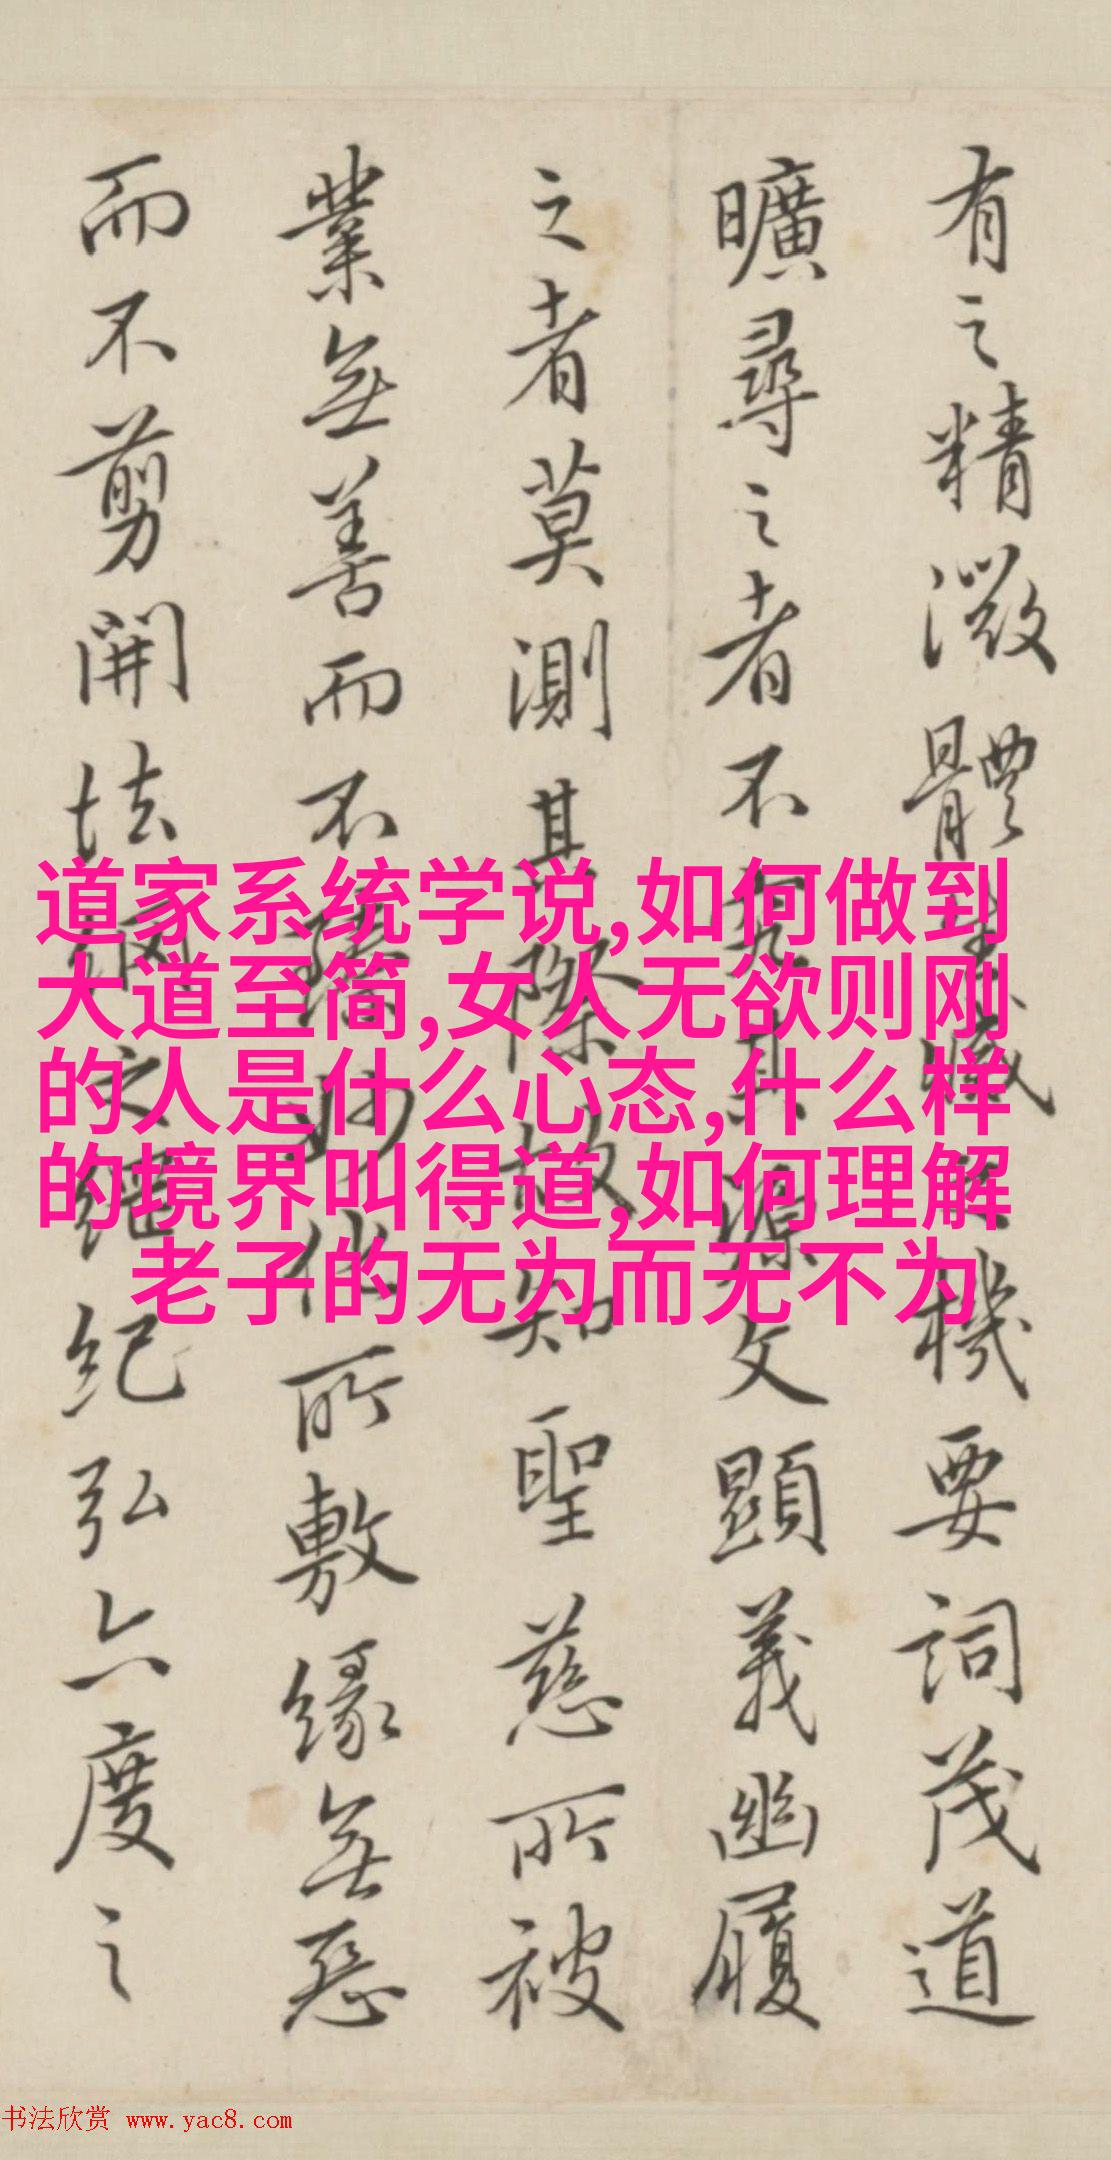 有之精微體生滅之機要詞茂道
曠尋之者不究其源文顯義幽履
之者莫測其際故知聖慈所被
業無善而不臻妙化所敷緣無惡
而不剪開法網之綱紀弘六度之
道家系统学说,如何做到
大道至简,女人无欲则刚
的人是什么心态,什么样
的境界叫得道,如何理解
老子的无为而无不为
书法欣赏 www.yac8.com